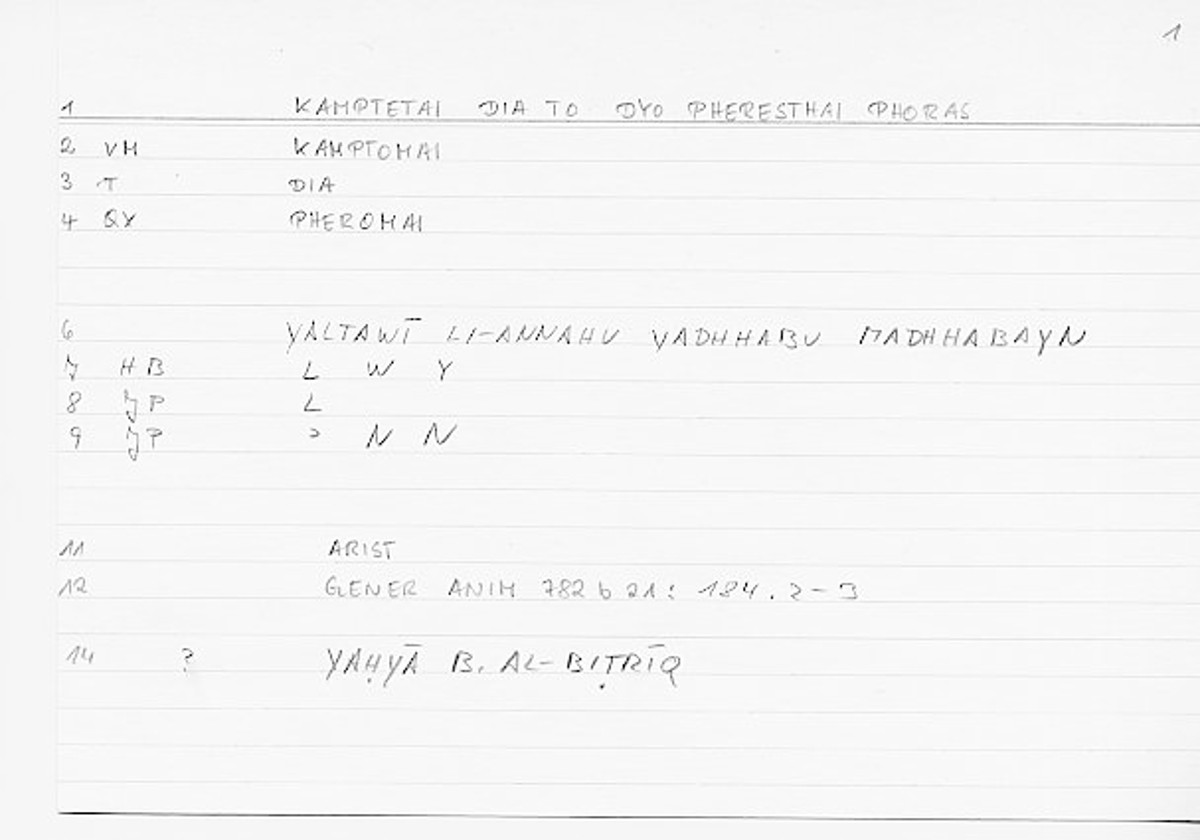 1
1 KAMPTETAI DIA TO DYO PHERESTHAI PHORAS
2 VM KAMPTOMAI
3 T DIA
4 QX PHEROMAI
6 YALTAWĪ LI-ANNAHU YADHHABU MADHHABAYN
7 HB L W Y
8 JP L
9 JP ɔ N N
11 ARIST
12 GENER ANIM 782 b 21 : 184. 2-3
14 ? YAḤYĀ B. AL-BIṬRĪQ